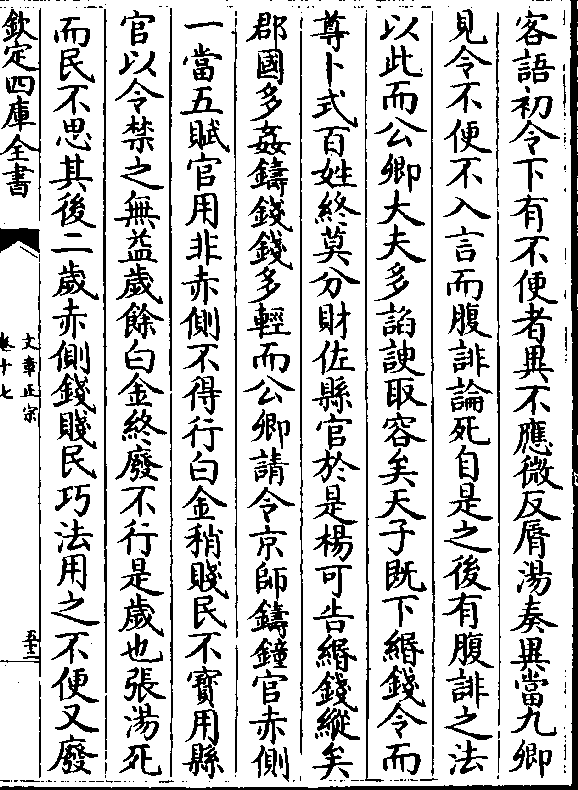 客語初令下有不便者異不應微反脣湯奏異當九卿
見令不便不入言而腹誹論死自是之後有腹誹之法
以此而公卿大夫多諂諛取容矣天子既下緡錢令而
尊卜式百姓終莫分財佐縣官於是楊可告緡錢縱矣
郡國多姦鑄錢錢多輕而公卿請令京師鑄鐘官赤側
一當五賦官用非赤側不得行白金稍賤民不寳用縣
官以令禁之無益歲餘白金終廢不行是歲也張湯死
而民不思其後二歲赤側錢賤民巧法用之不便又廢
欽定四庫全書
文章正宗
卷十七
五十二